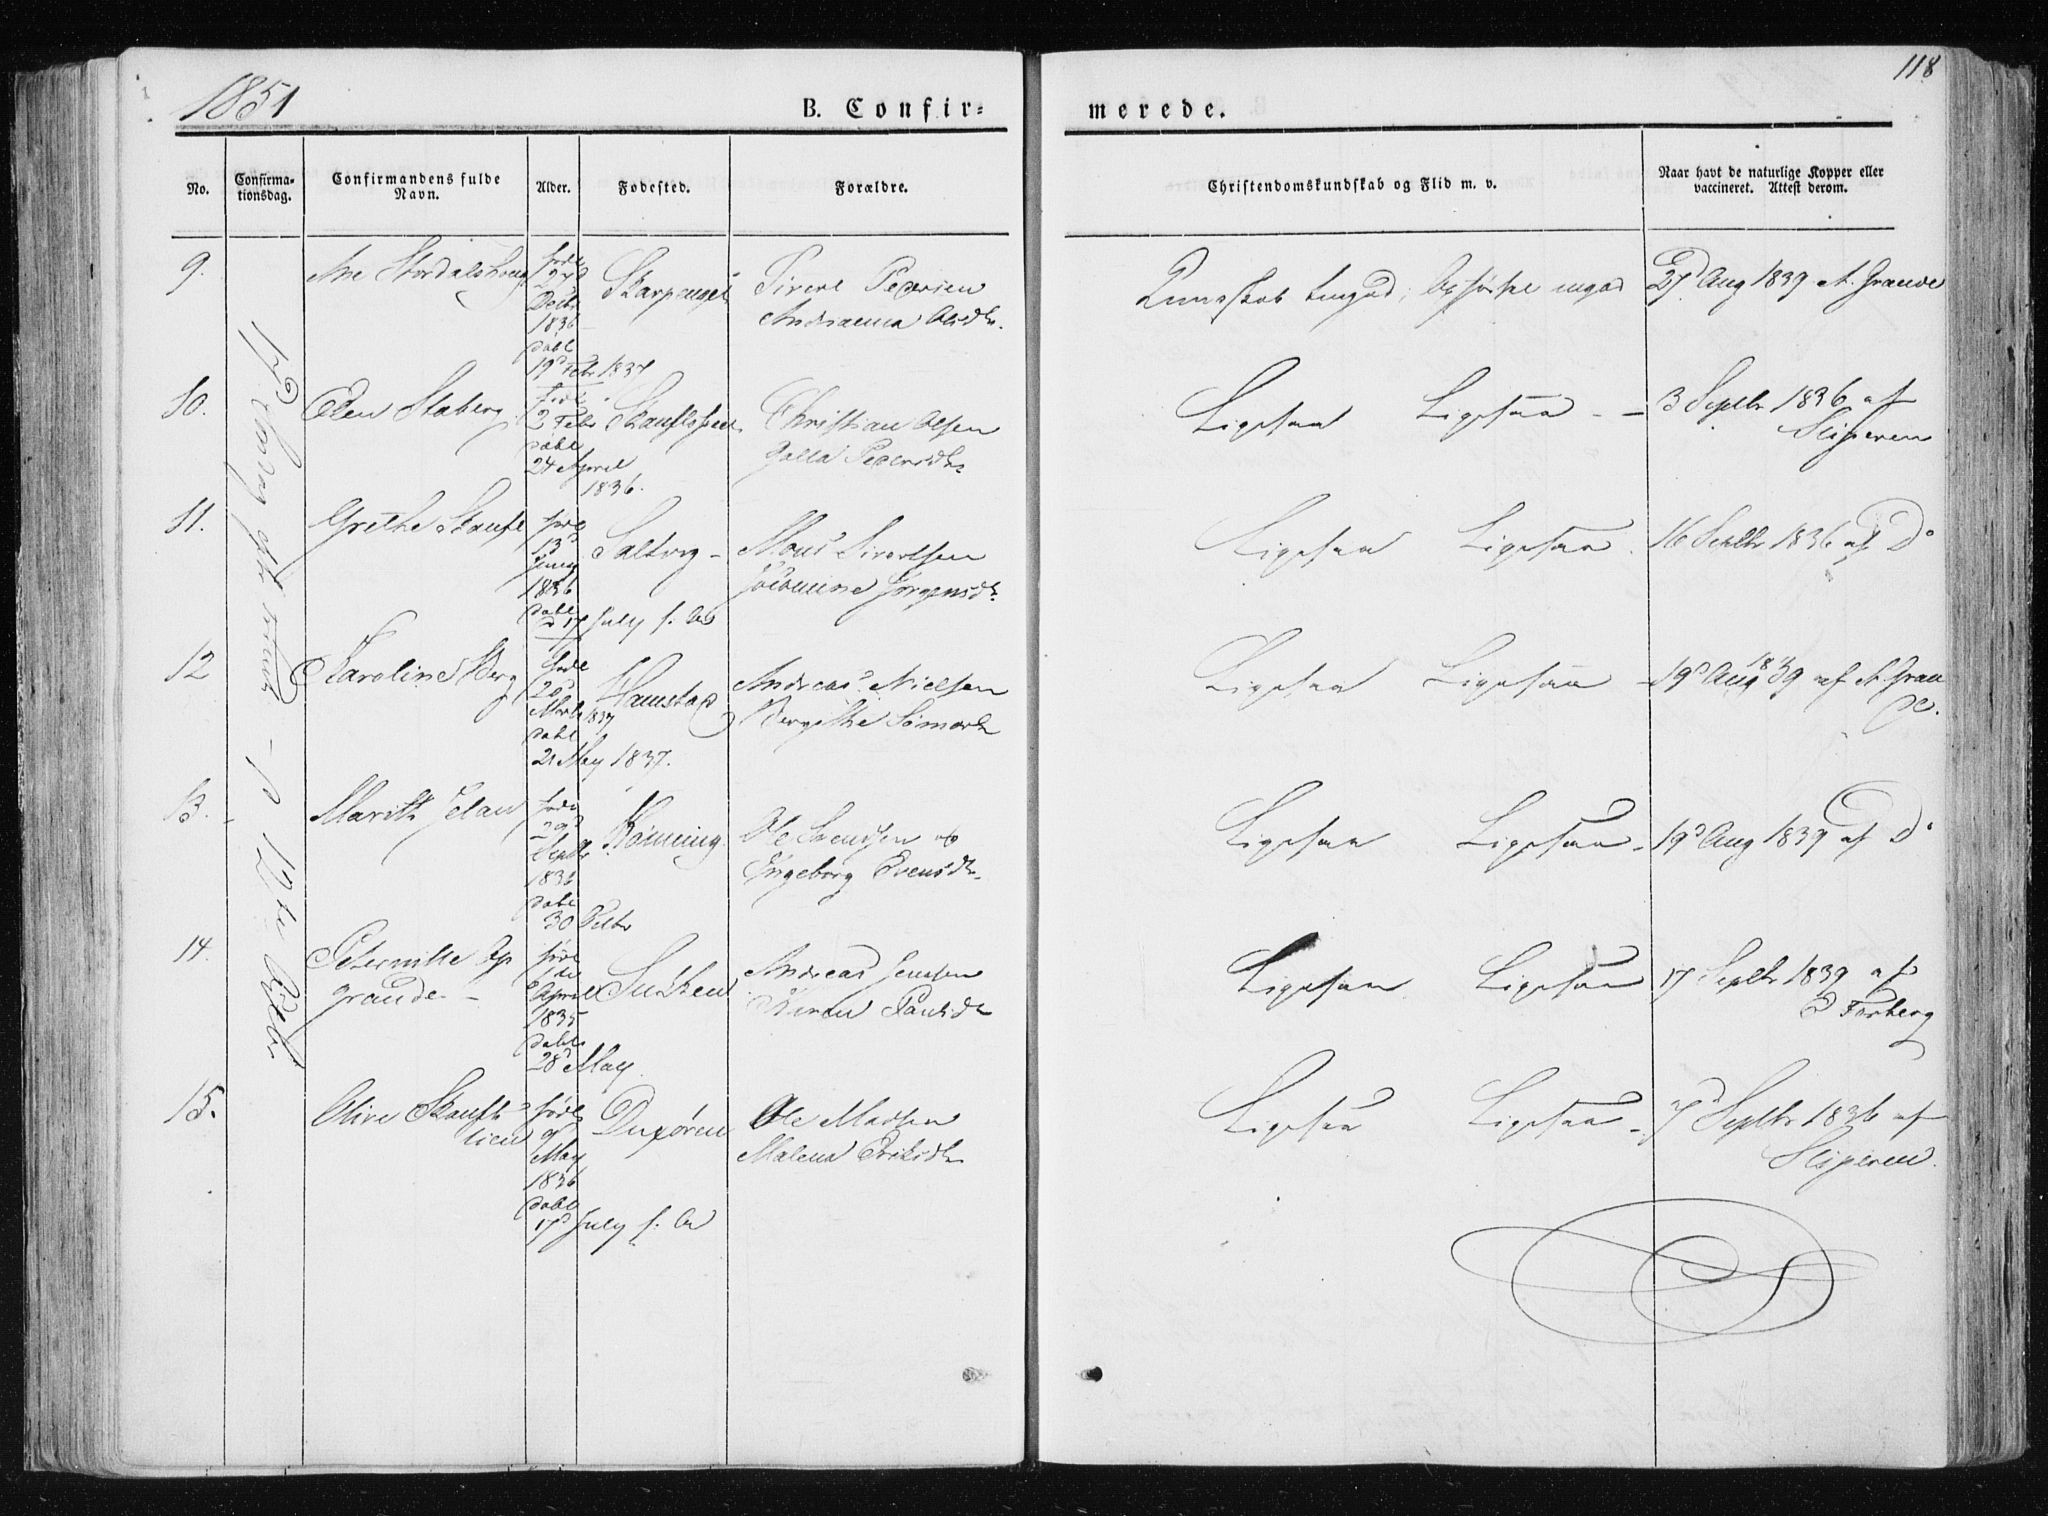 1851
118
B. Confir=
merede.
No.
Confirma-
tionsdag.
Confirmandens fulde
Navn.
Alder.
Fødested.
Forældre.
Christendomskundskab og Flid m. v.
Naar havt de naturlige Kopper eller
vaccineret. Attest derom.
9.
Ane Stordalshoug
føde
27d
Decbr
1836
døbt
19d Febr 1837
Sivert Pedersen
Andrianna Olsdtr.
Kundskab Opførsel
27d Aug 1839 A. Grande
10.
Elen Staberg
føde
2 Febr
døbt
24 April
1836.
Christian Olsen
Pedersdtr
Ligesaa Ligesaa -
3 Septbr 1836 af
Sliperen
11.
Grethe Skaufl
føde
13d
Juny
1836
døbt
d 17 July s. A
Saltvig -
Mons Sivertsen
Jacomine Jørgensdtr.
Ligesaa Ligesaa.
16 Septbr 1836 af Do
12
Karoline Berg
føde
20d
Marts 1837
døbt
21 May 1837.
Hamstad
Andreas Nielsen
Bergithe
Ligesaa Ligesaa -
19d Aug 1839 af A. Gran
de.
13.
Marith Jelan
føde
29d
Septbr
1836
døbt
30 Octbr
Rømming
Ole Svendsen og
Ingeborg Evensdtr.
Ligesaa Ligesaa -
19d Aug 1839 af Do
14.
Peternille Op
grande -
føde
1de
April
1835
døbt
28d May
Andreas Jensen
Karen Paulsdtr
Ligesaa Ligesaa
17 Septbr 1839 af
Forberg
15.
Olive Skaufl
lien
føde
9
May
1836
døbt
17d July s. A
Ole Madsen
Malena Eriksdtr
Ligesaa Ligesaa -
7d Septbr 1836 af
Sliperen.